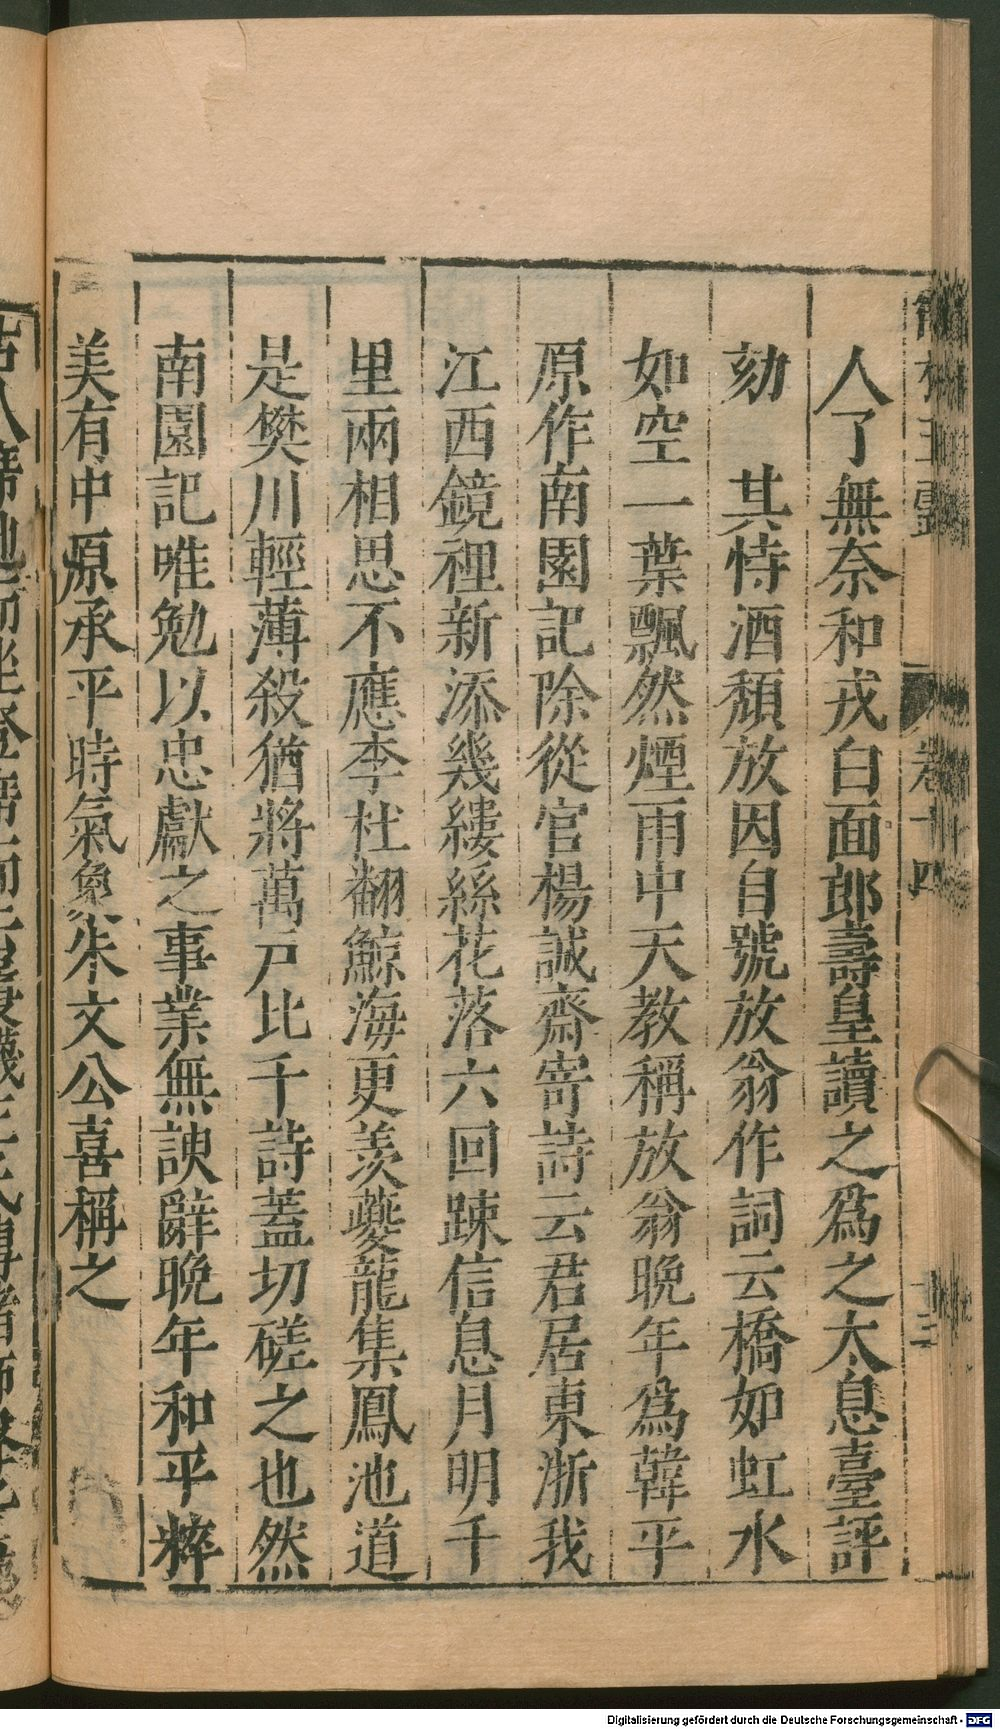 人了無奈和戎白面郎壽皇讀之爲之太息臺評
劾　其恃酒頹放因自號放翁作詞云橋如虹水
如空一葉飄然煙雨中天教稱放翁晚年爲韓平
原作南園記除從官楊誠齋寄詩云君居東浙我
江西鏡裡新添幾縷絲花落六回踈信息月明千
里兩相思不應李杜翻鯨海更羨夔龍集鳳池道
是樊川輕薄殺猶將萬戶比千詩蓋切磋之也然
南園記唯勉以忠獻之事業無諛辭晚年和平粹
美有中原承平時氣象朱文公喜稱之
卷十四
Digitalisierung gefördert durch die Deutsche Forschungsgemeinschaft - DFG